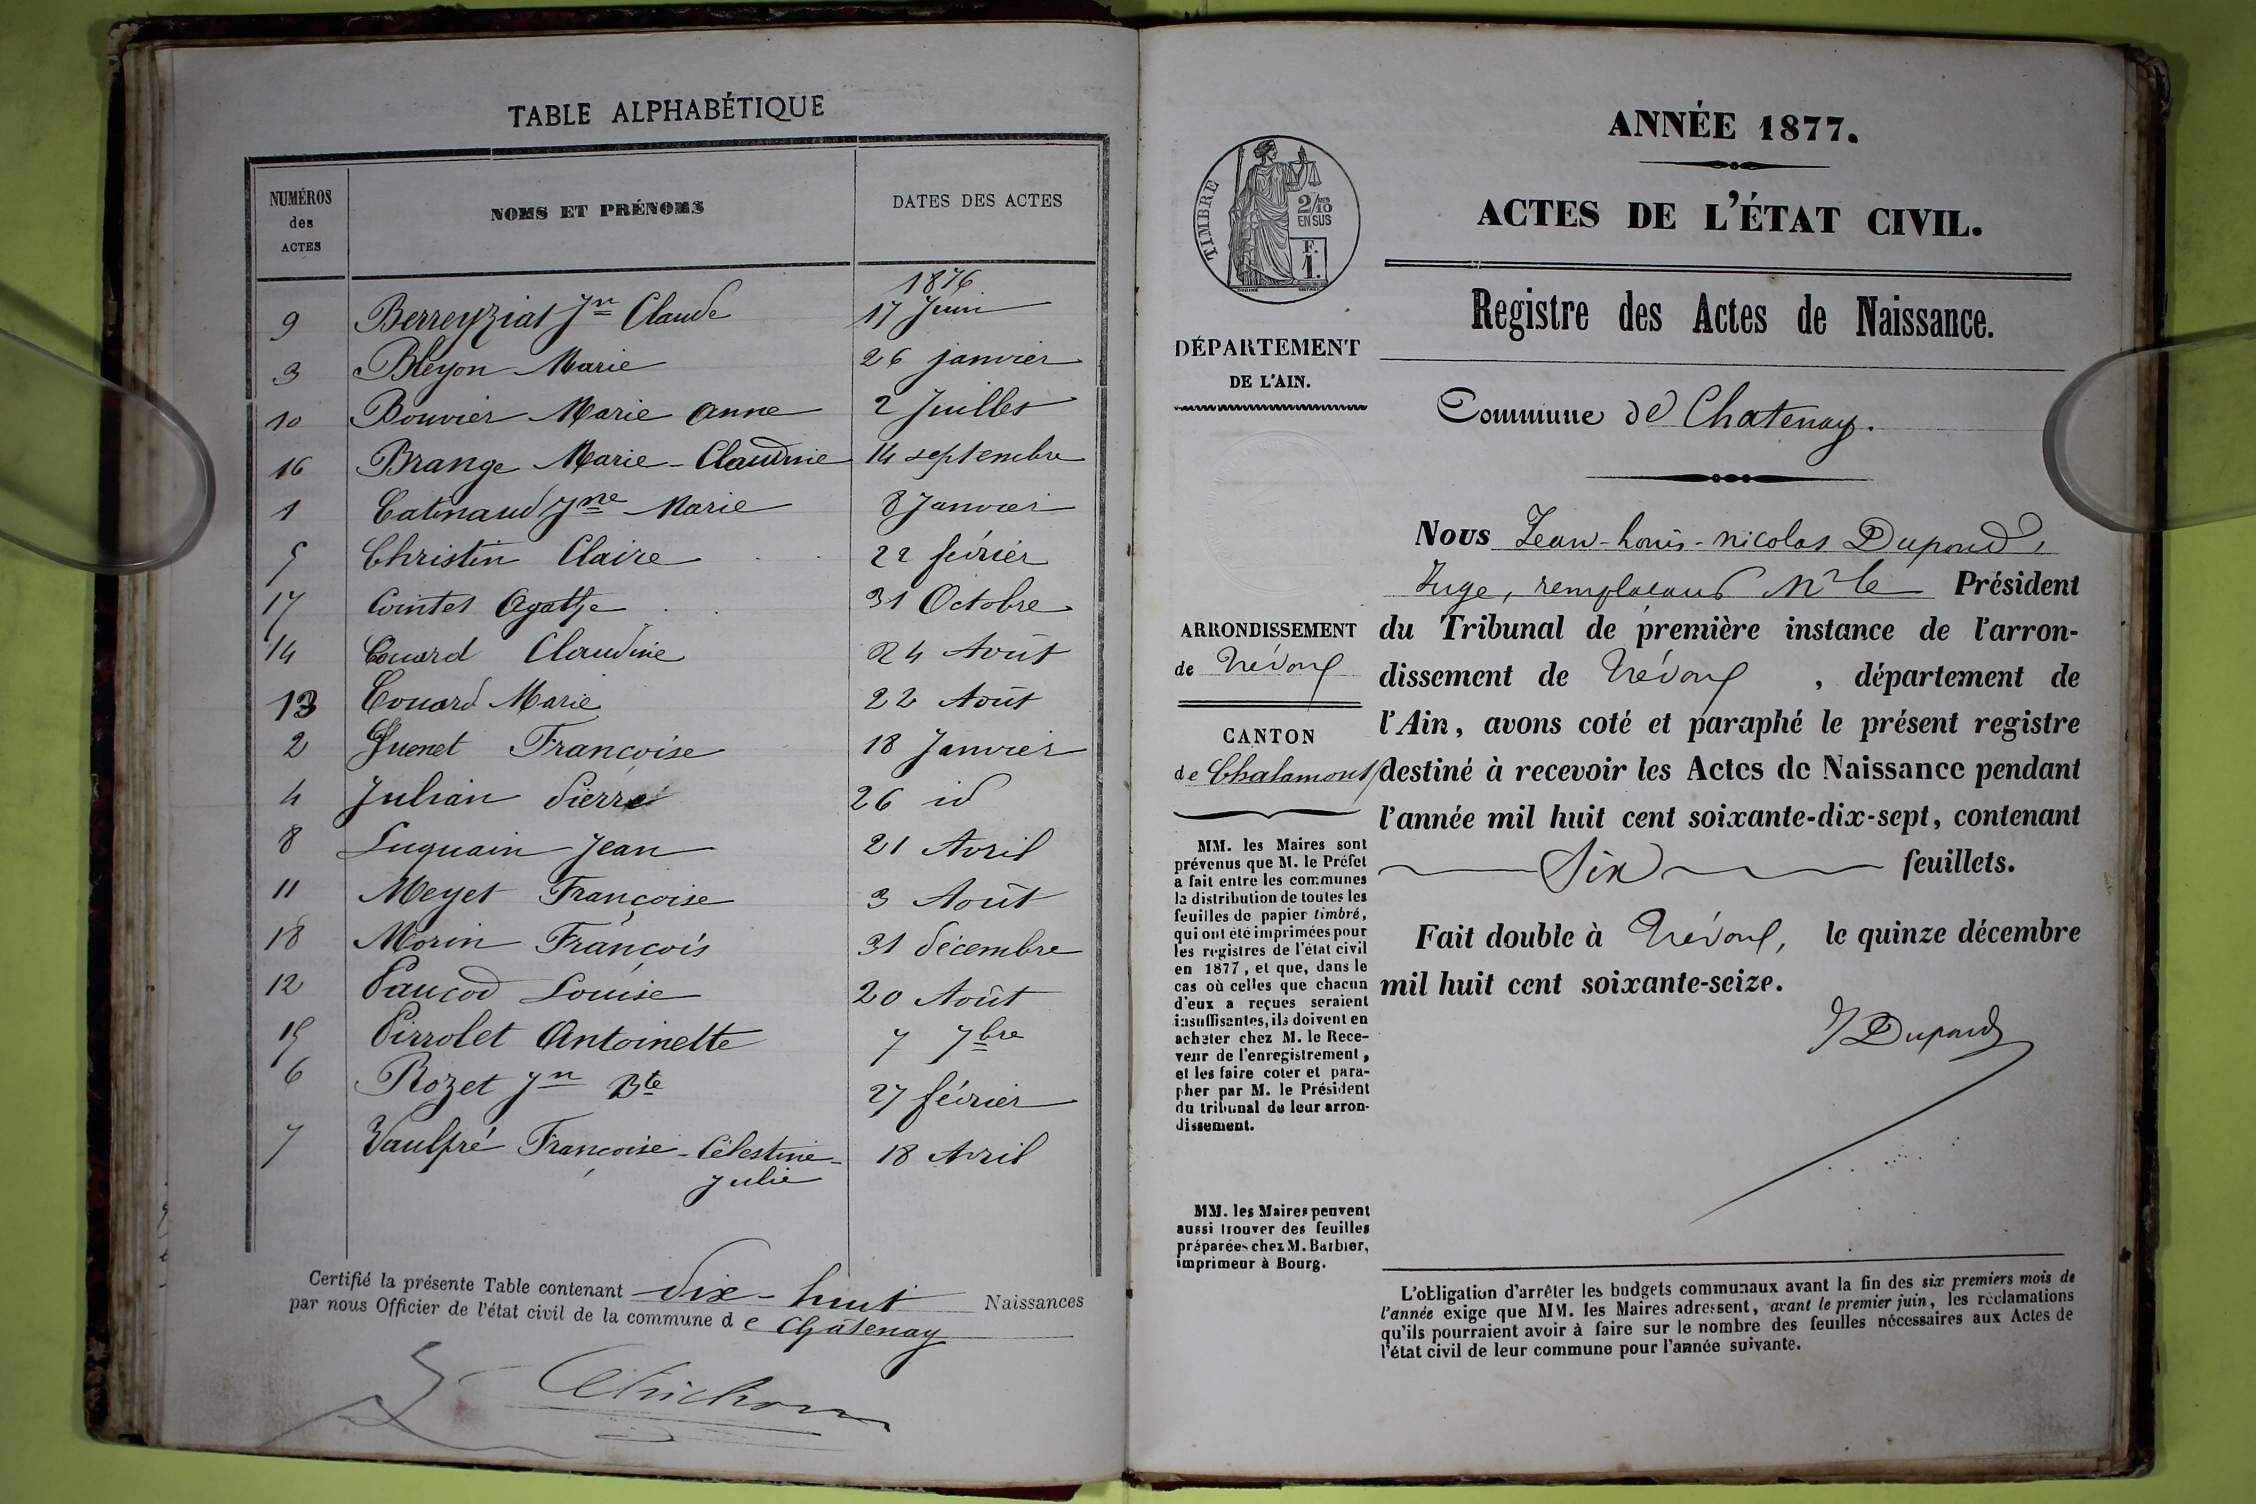 TABLE ALPHABÉTIQUE
NUMÉROS
des
ACTES
NOMS ET PRÉNOMS
DATES DES ACTES
1876
9 Berreyziat Jn Claude 17 Juin
3 Bleyon Marie 26 janvier
10 Bouvier Marie Anne 2 Juillet
16 Brange Marie-Claudine 14 septembre
1 Catinaud Jne Marie 8 Janvier
5 Christin Claire 22 février
17 Cointet Agathe 31 Octobre
14 Couard Claudine 24 Août
13 Couard Marie 22 Août
2 Guenet Françoise 18 Janvier
4 Julian Pierre 26 id
8 Luquain Jean 21 Avril
11 Meyet Françoise 3 Août
18 Morin François 31 décembre
12 Paucod Louise 20 Août
15 Pirrolet Antoinette 7 7bre
6 Rozet Jn Bte 27 février
7 Vaulpré Françoise-Célestine- 18 Avril
Julie
Certifié la présente Table contenant dix-huit Naissances
par nous Officier de l'état civil de la commune de Châtenay
ANNÉE 1877.
ACTES DE L'ÉTAT CIVIL.
TIMBRE
2/10
EN SUS
F.
1.
Registre des Actes de Naissance.
DÉPARTEMENT
DE L'AIN.
Commune de Chatenay.
Nous Jean-Louis-Nicolas Dupond,
Juge, remplaçant Mr le Président
du Tribunal de première instance de l'arron-
dissement de Trévoux, département de
l'Ain, avons coté et paraphé le présent registre
destiné à recevoir les Actes de Naissance pendant
l'année mil huit cent soixante-dix-sept, contenant
Six feuillets.
Fait double à Trévoux, le quinze décembre
mil huit cent soixante-seize.
J Dupond
ARRONDISSEMENT
de Trévoux
CANTON
de Chalamont
MM. les Maires sont
prévenus que M. le Préfet
a fait entre les communes
la distribution de toutes les
feuilles de papier timbré,
qui ont été imprimées pour
les registres de l'état civil
en 1877, et que, dans le
cas où celles que chacun
d'eux a reçues seraient
insuffisantes, ils doivent en
acheter chez M. le Rece-
veur de l'enregistrement,
et les faire coter et para-
pher par M. le Président
du tribunal de leur arron-
dissement.
MM. les Maires peuvent
aussi trouver des feuilles
préparées chez M. Barbier,
imprimeur à Bourg.
L'obligation d'arrêter les budgets communaux avant la fin des six premiers mois de
l'année exige que MM. les Maires adressent, avant le premier juin, les réclamations
qu'ils pourraient avoir à faire sur le nombre des feuilles nécessaires aux Actes de
l'état civil de leur commune pour l'année suivante.